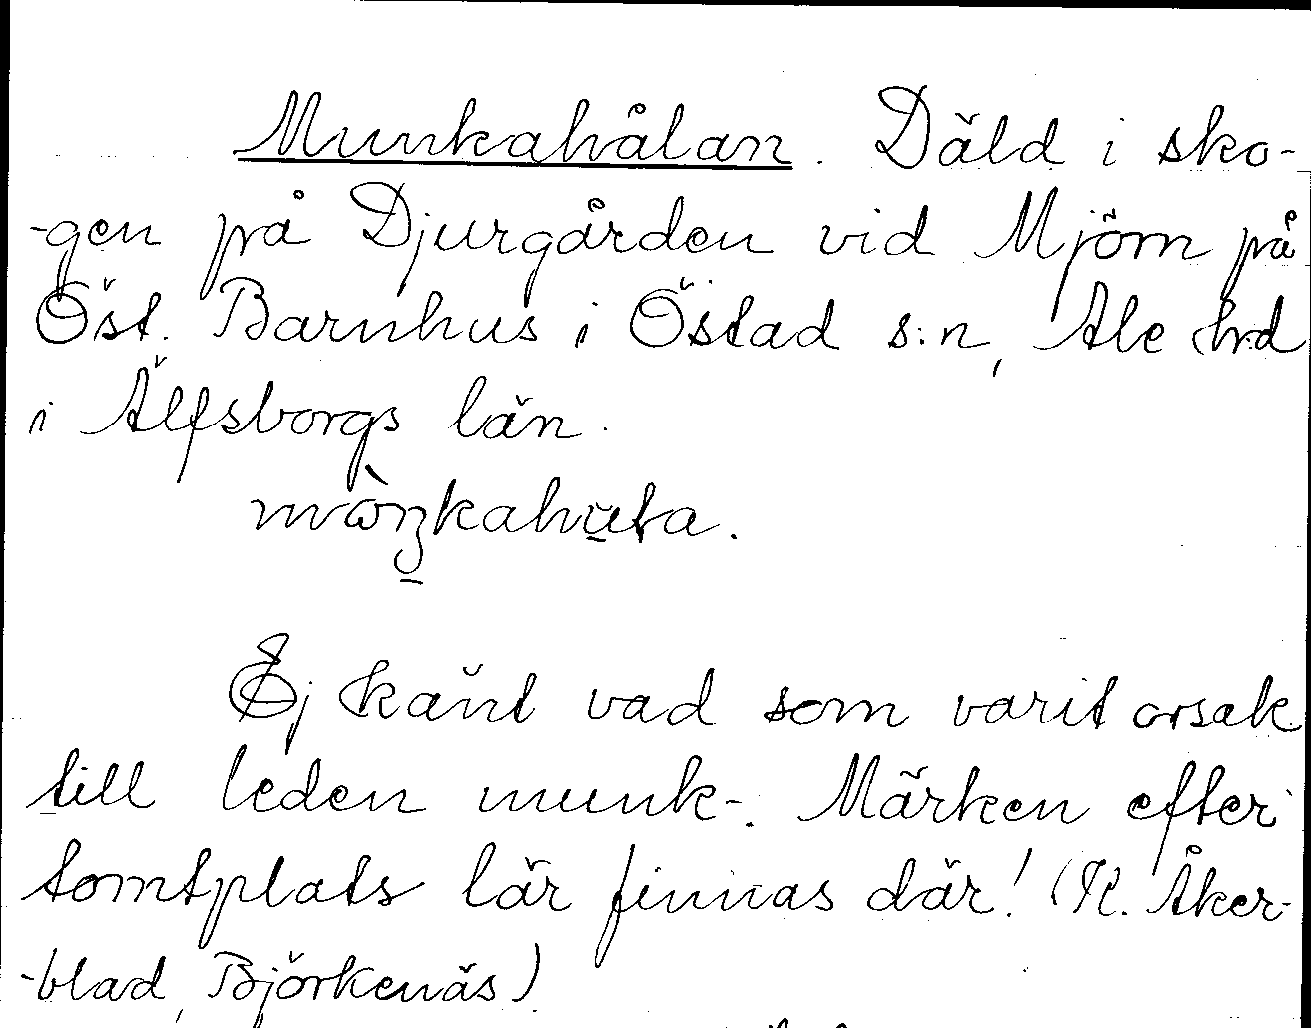 Munkahålan. Däld i sko-
-gen på Djurgården vid Mjörn på
Öst. Barnhus i Östad s:n, Ale hd
i Älfsborgs län.
Ej känt vad som varit orsak
till leden munk-. Märken efter
tomtplats lär finnas där! (K. Åker-
-blad, Björkenäs)